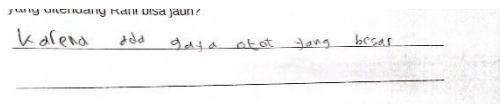 yang ditendang Rani bisa jauh?
Karena ada gaya otot yang besar